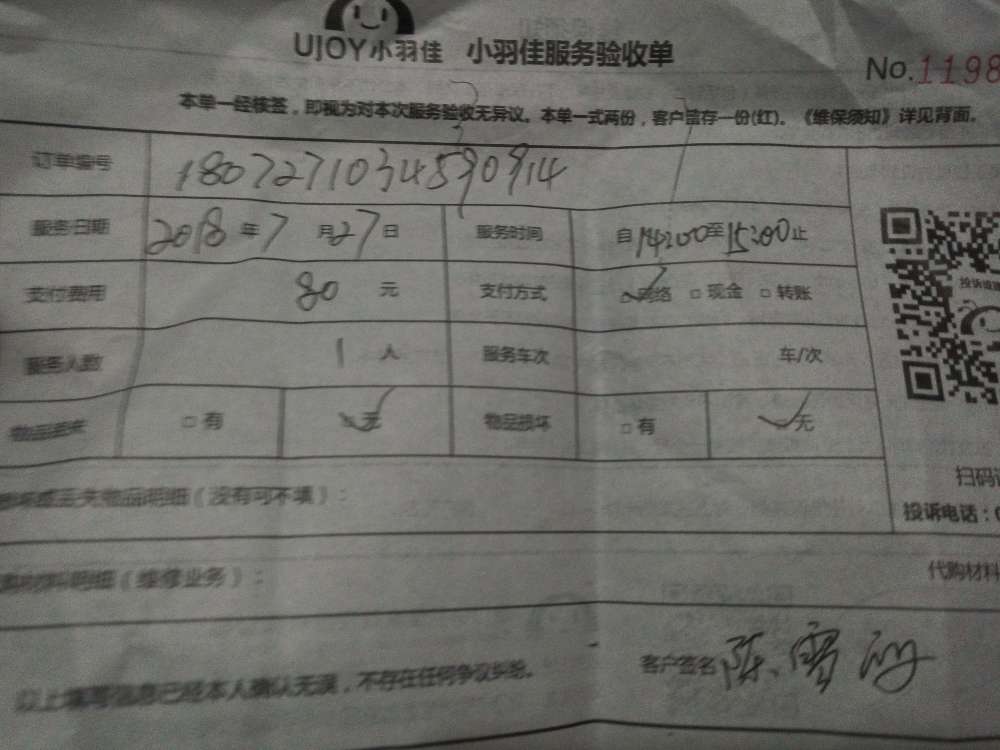 UJOY小羽佳 小羽佳服务验收单
No.1198
本单一经核签，即视为对本次服务验收无异议。本单一式两份，客户留存一份(红)。《维保须知》详见背面。
订单编号 1807271034590914
服务日期 2018年7月27日 服务时间 自14:00至15:00止
支付费用 80元 支付方式 ☑网络 □现金 □转账
服务人数 1人 服务车次 车/次
物品丢失 □有 ☑无 物品损坏 □有 ☑无
损坏或丢失物品明细（没有可不填）：
扫码
投诉电话：0
材料明细（维修业务）：
代购材料
以上填写信息已经本人确认无误，不存在任何争议纠纷。
客户签名 陈雪